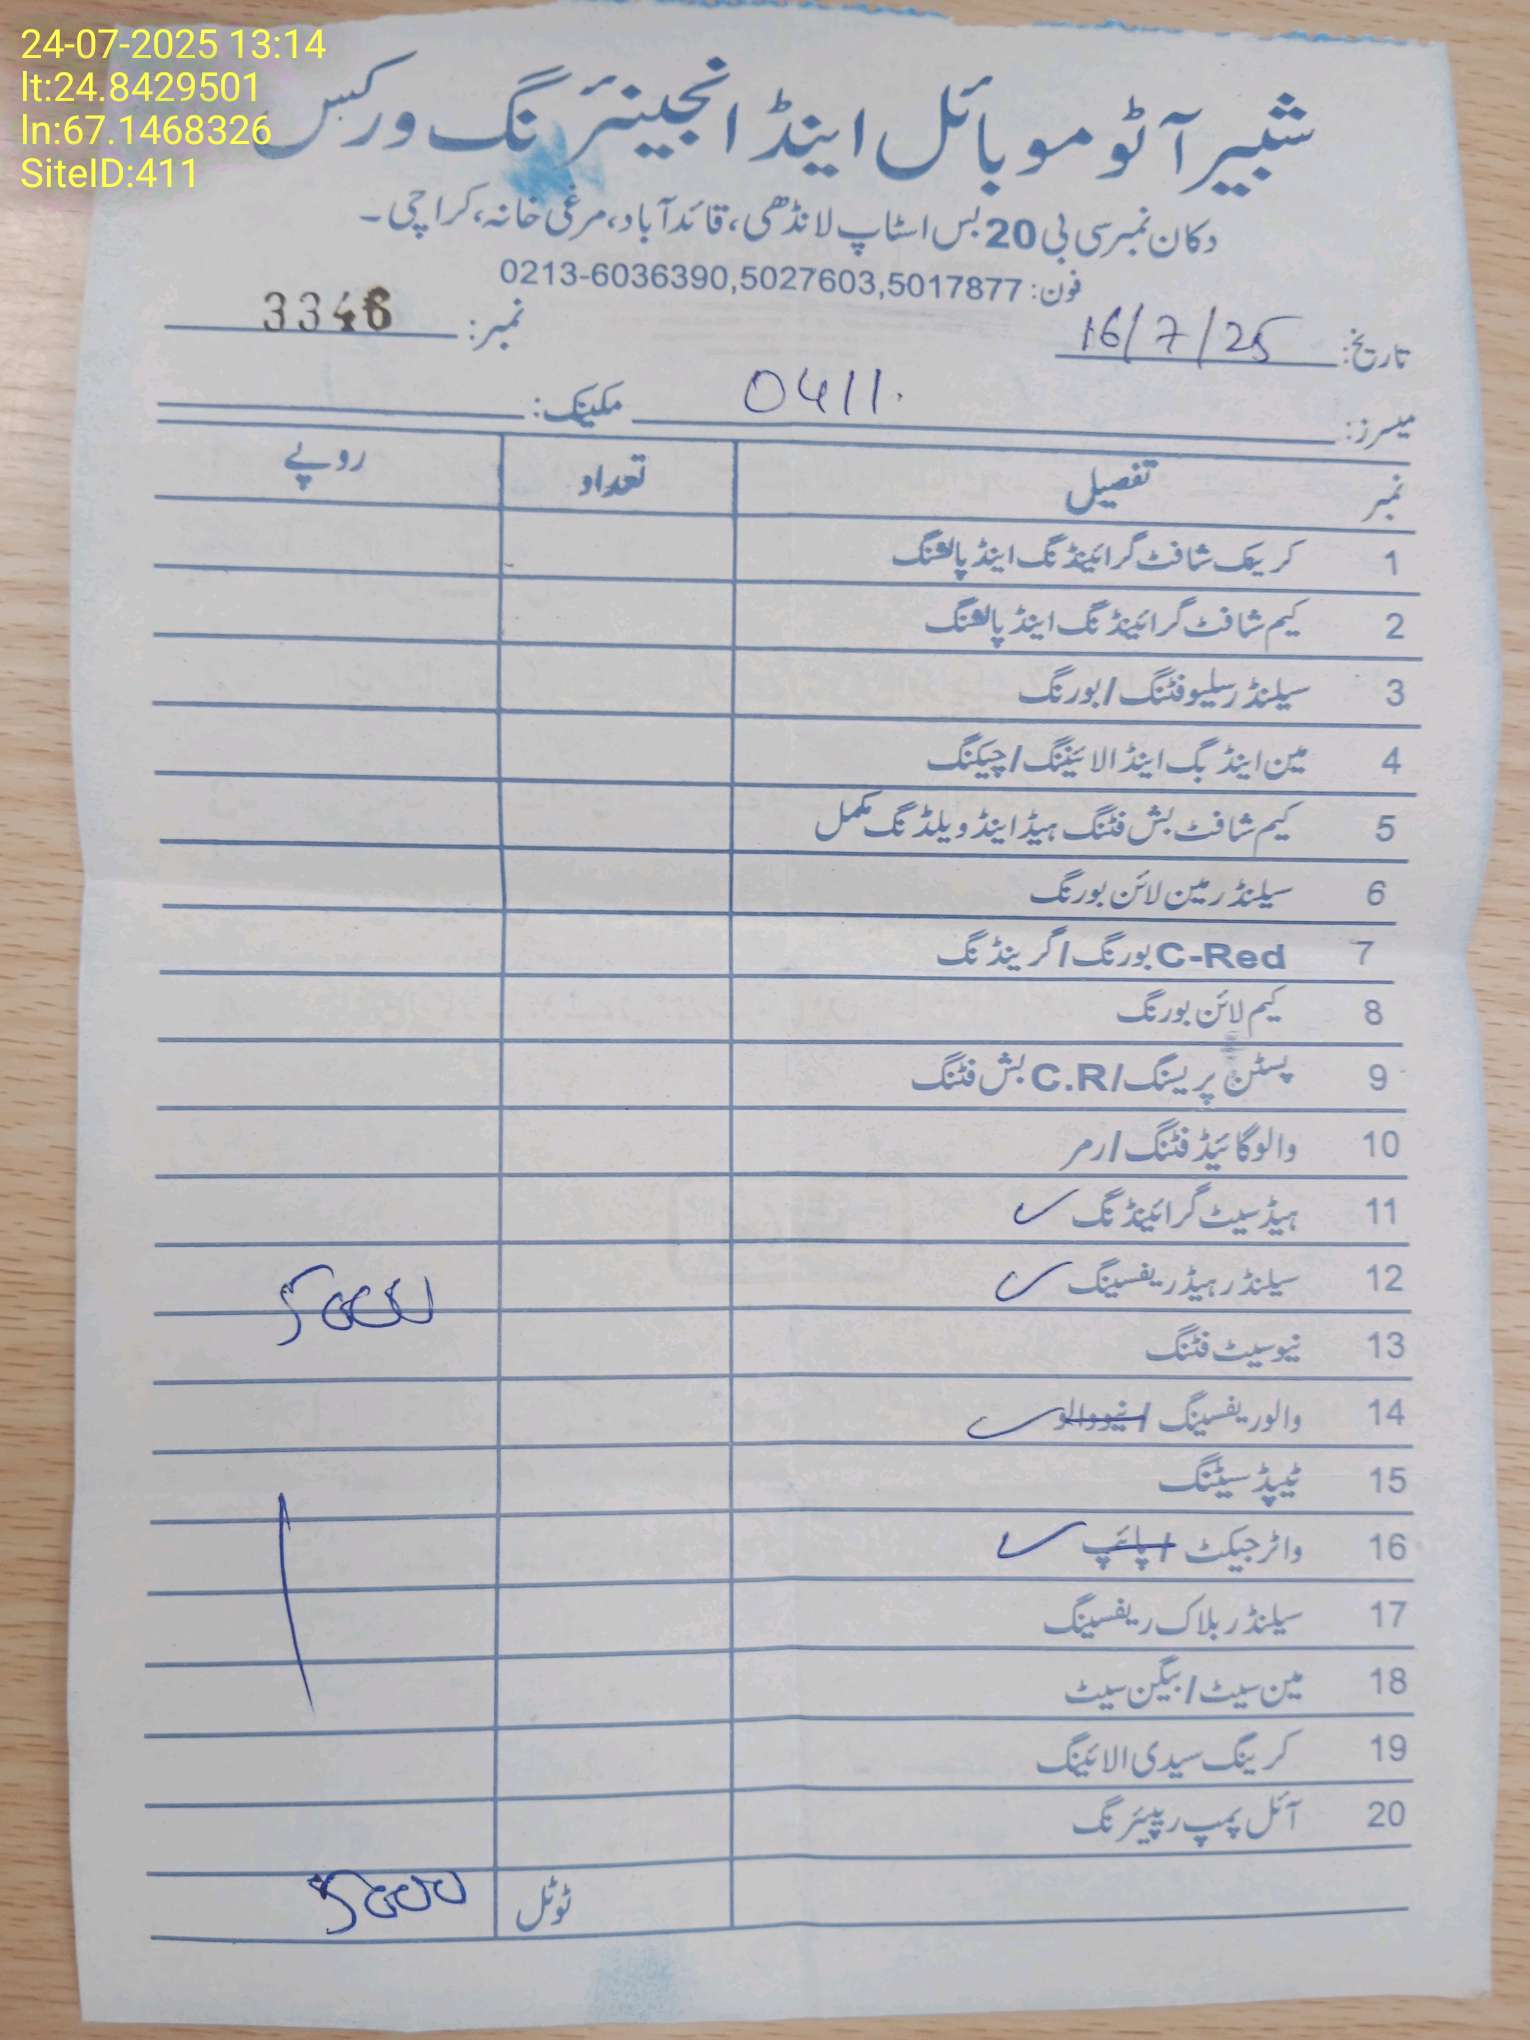 24-07-2025 13:14
lt:24.8429501
ln:67.1468326
SiteID:411
شبیر آٹو موبائل اینڈ انجینئرنگ ورکس
دکان نمبر سی بی 20 بس اسٹاپ لانڈھی، قائد آباد، مرغی خانہ، کراچی۔
فون: 0213-6036390,5027603,5017877
تاریخ: 16/7/25 نمبر: 3346
میسرز: 0411. مکینک:
نمبر تفصیل تعداد روپے
1 کرینک شافٹ گرائینڈنگ اینڈ پالشنگ
2 کیم شافٹ گرائینڈنگ اینڈ پالشنگ
3 سیلنڈر سلیو فٹنگ / بورنگ
4 مین اینڈ بگ اینڈ الائیننگ / چیکنگ
5 کیم شافٹ بش فٹنگ ہیڈ اینڈ ویلڈنگ مکمل
6 سیلنڈر مین لائن بورنگ
7 C-Red بورنگ / گرینڈنگ
8 کیم لائن بورنگ
9 پسٹن پریسنگ / C.R بش فٹنگ
10 والو گائیڈ فٹنگ / رمر
11 ہیڈ سیٹ گرائینڈنگ ✓
12 سیلنڈر ہیڈ ریفسینگ ✓ 5000
13 نیو سیٹ فٹنگ
14 والو ریفسینگ / نیو والو ✓
15 ٹیپڈ سیٹنگ
16 واٹر جیکٹ / پائپ ✓
17 سیلنڈر بلاک ریفسینگ
18 مین سیٹ / بیگن سیٹ
19 کرینگ سیدی الائینگ
20 آئل پمپ ریپئرنگ
ٹوٹل 5000